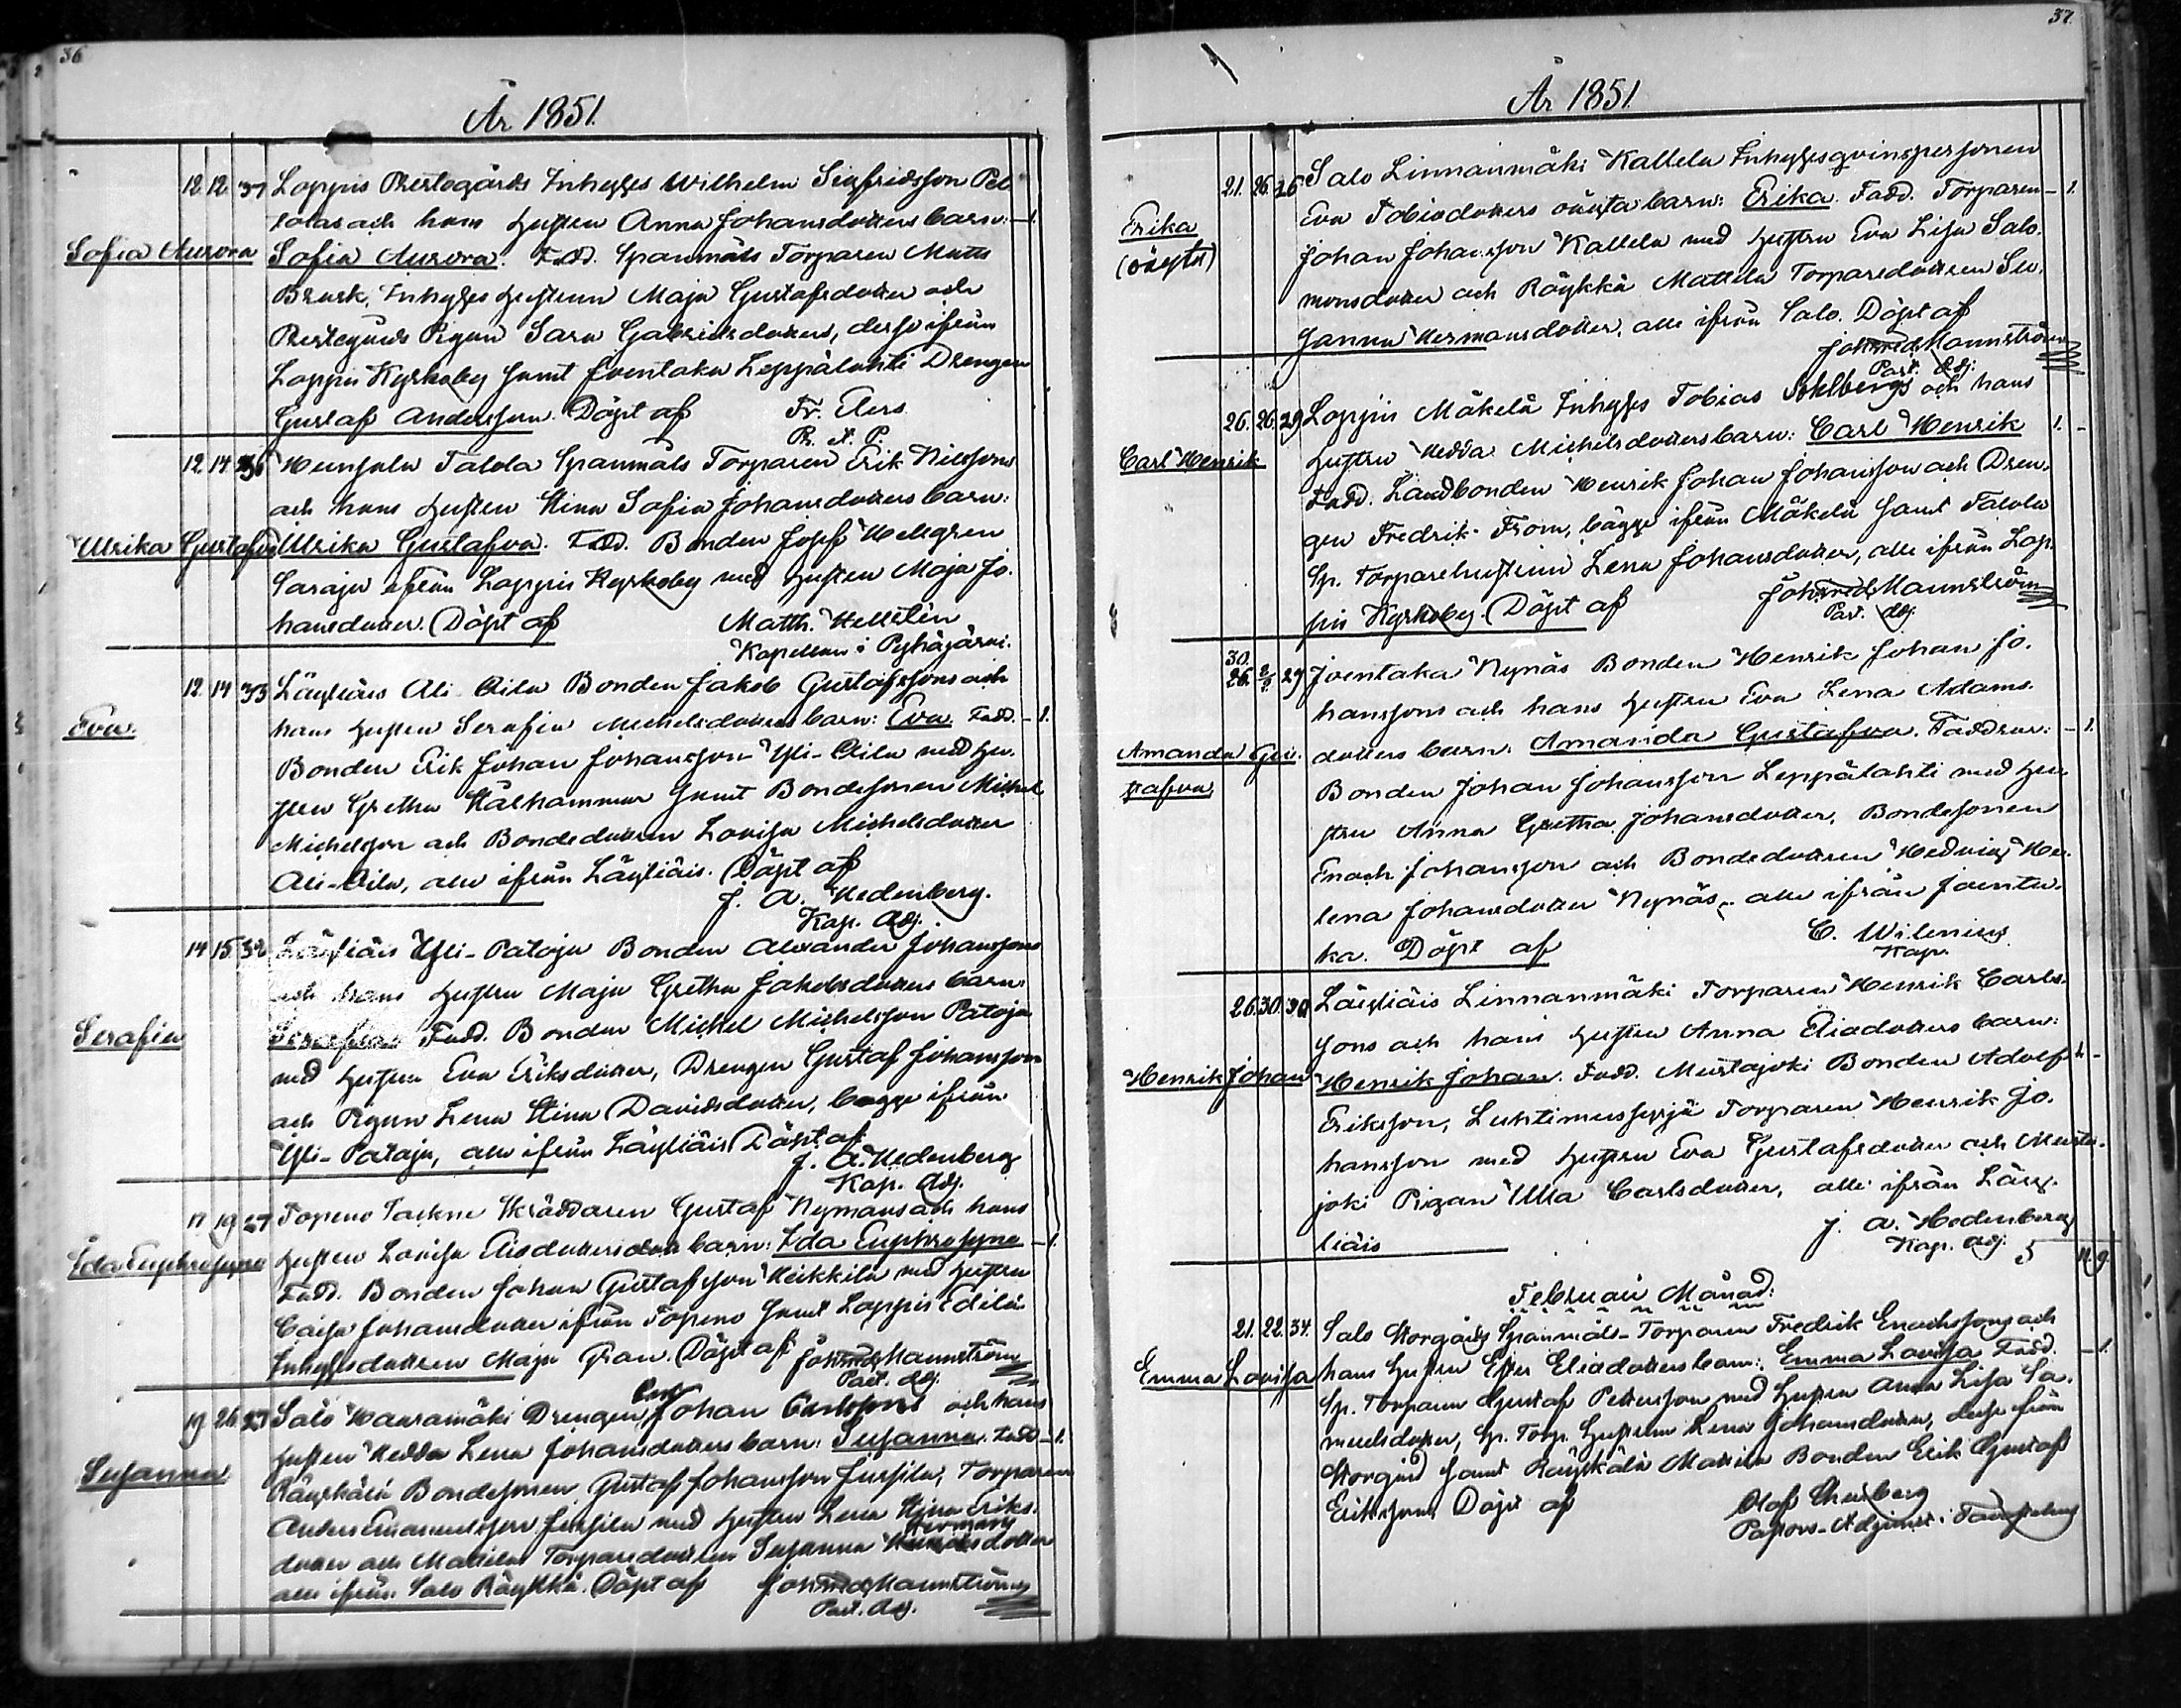 36
År 1851.
12. 12. 37 Loppis Prestogårds Inhyses Wilhelm Sigfridsson Pel
tolas och hans hustru Anna Johansdotters barn: – 1.
Sofia Aurora Sofia Aurora. Fadd. Spanmåls Torparen Matts
Brusk, Inhyses hustrun Maja Gustafsdotter och
Prestegårds Pigan Sara Gabrielsdotters, desse ifrån
Loppis Kyrkoby samt Joentaka Leppälahti Drengen
Gustaf Andersson. Döpt af Fr. Elers.
Pr. o. P.
12 14 36 Hunsala Talola Spanmåls Torparen Erik Nilssons
och hans hustru Stina Sofia Johansdotters barn:
Ulrika Gustafva Ulrika Gustafva. Fadd. Bonden Josef Hellgren
Saraja ifrån Loppis Kyrkoby med hustru Maja Jo-
hansdotter. Döpt af Matth. Hellstén
Kapellan i Pyhäjärvi.
12 14 33 Läyliäis Ali Aila Bonden Jakob Gustafssons och
Eva. hans hustru Serafia Michelsdotters barn: Eva. Fadd. – 1.
Bonden Erik Johan Johansson Yli-Aila med hu-
stru Gretha Stålhammar samt Bondesonen Michel
Michelsson och Bondedottren Lovisa Michelsdotter
Ali-Aila, alle ifrån Läyliäis. Döpt af
J. A. Hedenberg.
Kap. Adj.
14 15 32 Läyliäis Yli-Patoja Bonden Alexander Johanssons
och hans hustru Maja Gretha Jakobsdotters barn
Serafia Serafia. Fadd. Bonden Michel Michelsson Patoja
med hustru Eva Eriksdotter, Drengen Gustaf Johansson
och Pigan Lena Stina Davidsdotter, bägge ifrån
Yli-Patoja, alle ifrån Läyliäis. Döpt af
J. A. Hedenberg
Kap. Adj.
17 19 27 Topeno Skräddaren Gustaf Nymans och hans
Ida Euphrosyne hustru Lovisa Eliedotters barn: Ida Euphrosyne – 1.
Fadd. Bonden Johan Gustafsson Heikkilä med hustru
Caisa Johansdotter ifrån Topeno samt Loppis Edilä
Inhysesdottren Maja Gran. Döpt af Joh. Mannström
Past. Adj.
19 26 27 Salo Haaramäki Drengen Johan Carlssons och hans
hustru Hedda Lena Johansdotters barn: Susanna. Fadd. – 1.
Susanna Räyskälä Bondesonen Gustaf Johansson Jussila, Torparen
Anders Emanuelsson Jussila med hustru Lena Stina Eriks-
Hermans
dotter och Mattila Torparedottren Susanna dotter
alle ifrån Salo Räyskälä. Döpt af Joh. Mannström
Past. Adj.
37.
År 1851.
21. 26. 26 Salo Linnainmäki Kallela Inhysesqvinspersonen
Erika Eva Tobiasdotters oäkta barn: Erika. Fadd. Torparen – 1.
(oäkta) Johan Johansson Kallela med hustru Eva Lisa Salo-
monsdotter och Röykkä Mattila Torparedottren Su-
sanna Hermansdotter, alle ifrån Salo. Döpt af
Joh. Mannström
Past. Adj.
26. 26. 29 Loppis Mäkelä Inhyses Tobias Sohlbergs och hans
Carl Henrik hustru Hedda Michelsdotters barn: Carl Henrik 1. –
Fadd. Landbonden Henrik Johan Johansson och Dren-
gen Fredrik From, bägge ifrån Mäkelä samt Talola
Sp. Torparehustrun Lena Johansdotter, alle ifrån Lop-
pis Kyrkoby. Döpt af Joh. Mannström
Past. Adj.
30.
26. 2/2. 29 Joentaka Nynäs Bonden Henrik Johan Jo-
hanssons och hans hustru Eva Lena Adams-
Amanda Gu- dotters barn: Amanda Gustafva. Faddrar: – 1.
stafva Bonden Johan Johansson Leppälahti med hu-
stru Anna Gretha Johansdotter, Bondesonen
Enoch Johansson och Bondedottren Hedvig He-
lena Johansdotter Nynäs, alle ifrån Joenta-
ka. Döpt af C. Wilenius
Kap.
26 30. 30 Läyliäis Linnanmäki Torparen Henrik Carls-
sons och hans hustru Anna Eliedotters barn:
Henrik Johan Henrik Johan. Fadd. Mustajoki Bonden Adolf 1. –
Eriksson, Luhtimussyrjä Torparen Henrik Jo-
hansson med hustru Eva Gustafsdotter och Musta-
joki Pigan Ulla Carlsdotter, alle ifrån Läyj-
liäis J. A. Hedenberg
Kap. Adj. 5 11. 9.
Februari Månad:
21. 22. 34. Salo Storgårds Spanmåls-Torparen Fredrik Enochssons och
Emma Lovisa hans hustru Ester Eliedotters barn: Emma Lovisa Fadd. – 1.
Sp. Torparen Gustaf Pettersson med hustru Anna Lisa Sa-
muelsdotter, Sp. Torp. hustrun Lena Johansdotter, desse från
Storgård samt Räyskälä Mattila Bonden Erik Gustaf
Eriksson. Döpt af Olof
Pastors-Adjunct i Tavastehus